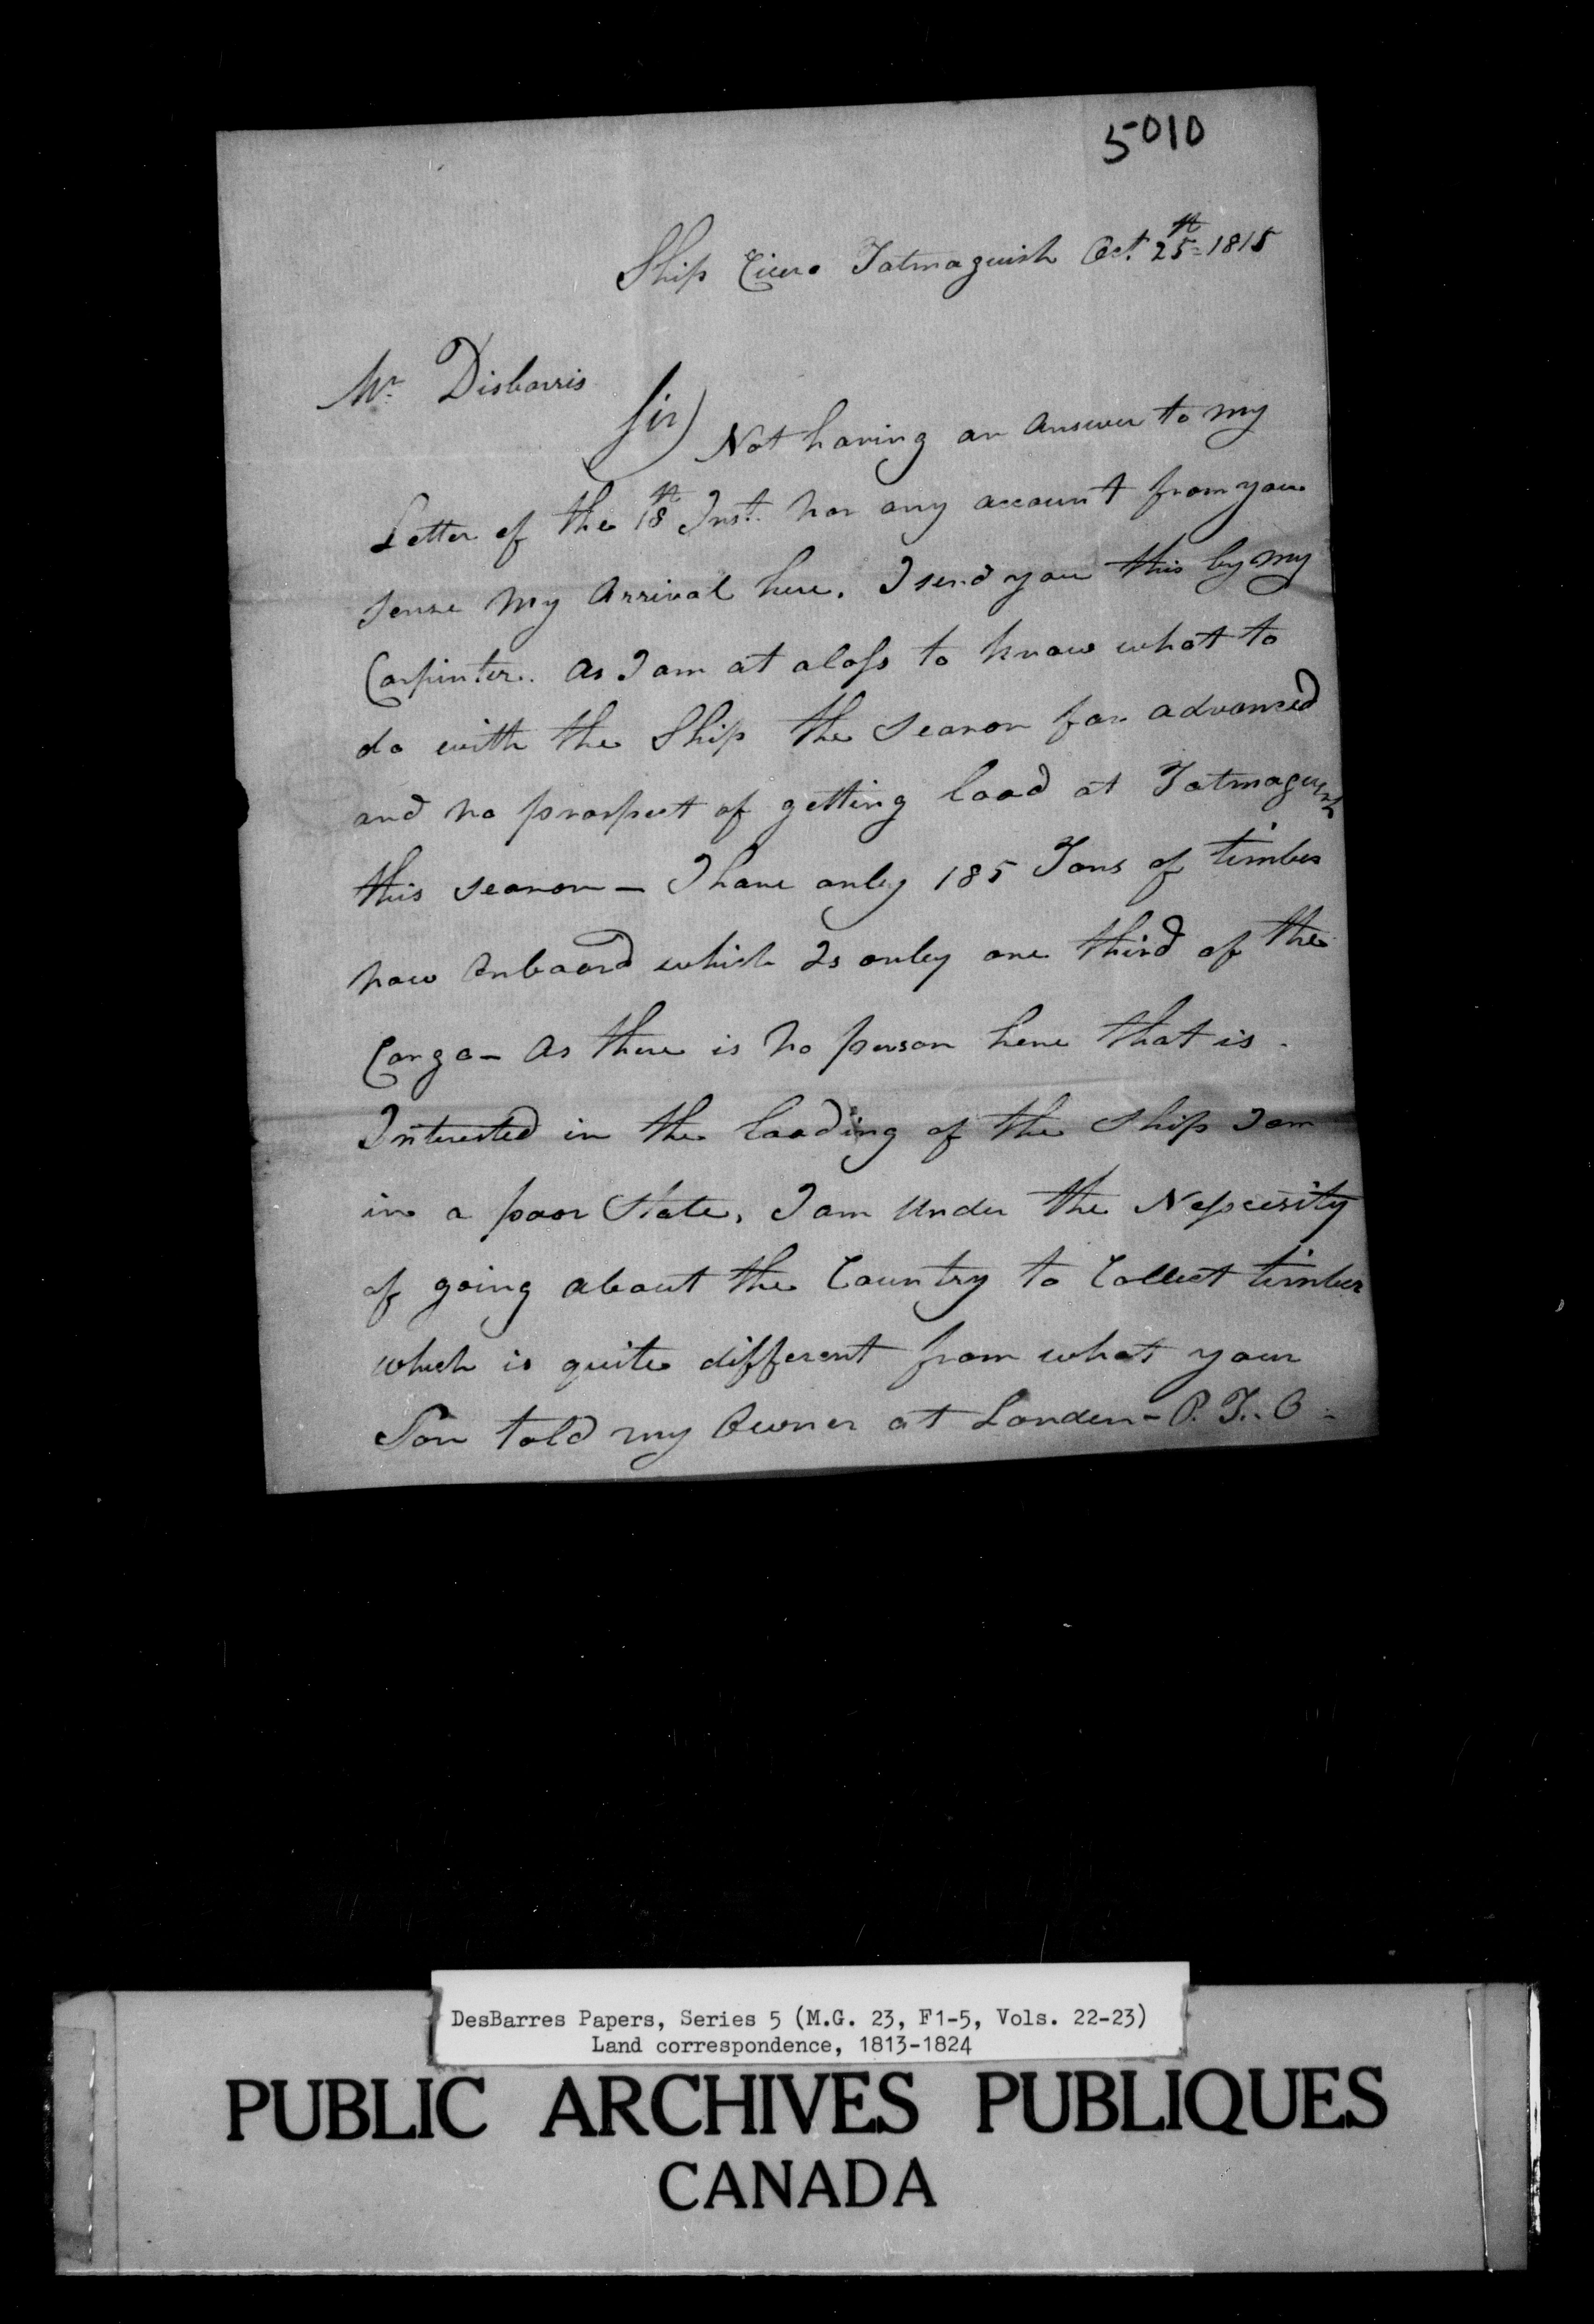 5010
Ship Cicero Tatmaguish Oct. 25th 1815
Mr. Disbarris
Sir) Not having an answer to my
Letter of the 18th Inst. nor any account from you
sense my arrival here. I send you this by my
Carpinter. as I am at a loss to know what to
do with the Ship the season far advanced
and no prospect of getting load at Tatmaguish
this season – I have onley 185 Tons of timber
now onboard which Is onley one third of the
Cargo – as there is no person here that is
Interested in the loading of the Ship I am
in a poor State, I am under the Nesscesity
of going about the Country to Collect timber
which is quite different from what your
Son told my Owner at Londen – P.T.O
DesBarres Papers, Series 5 (M.G. 23, F1-5, Vols. 22-23)
Land correspondence, 1813-1824
PUBLIC ARCHIVES PUBLIQUES
CANADA